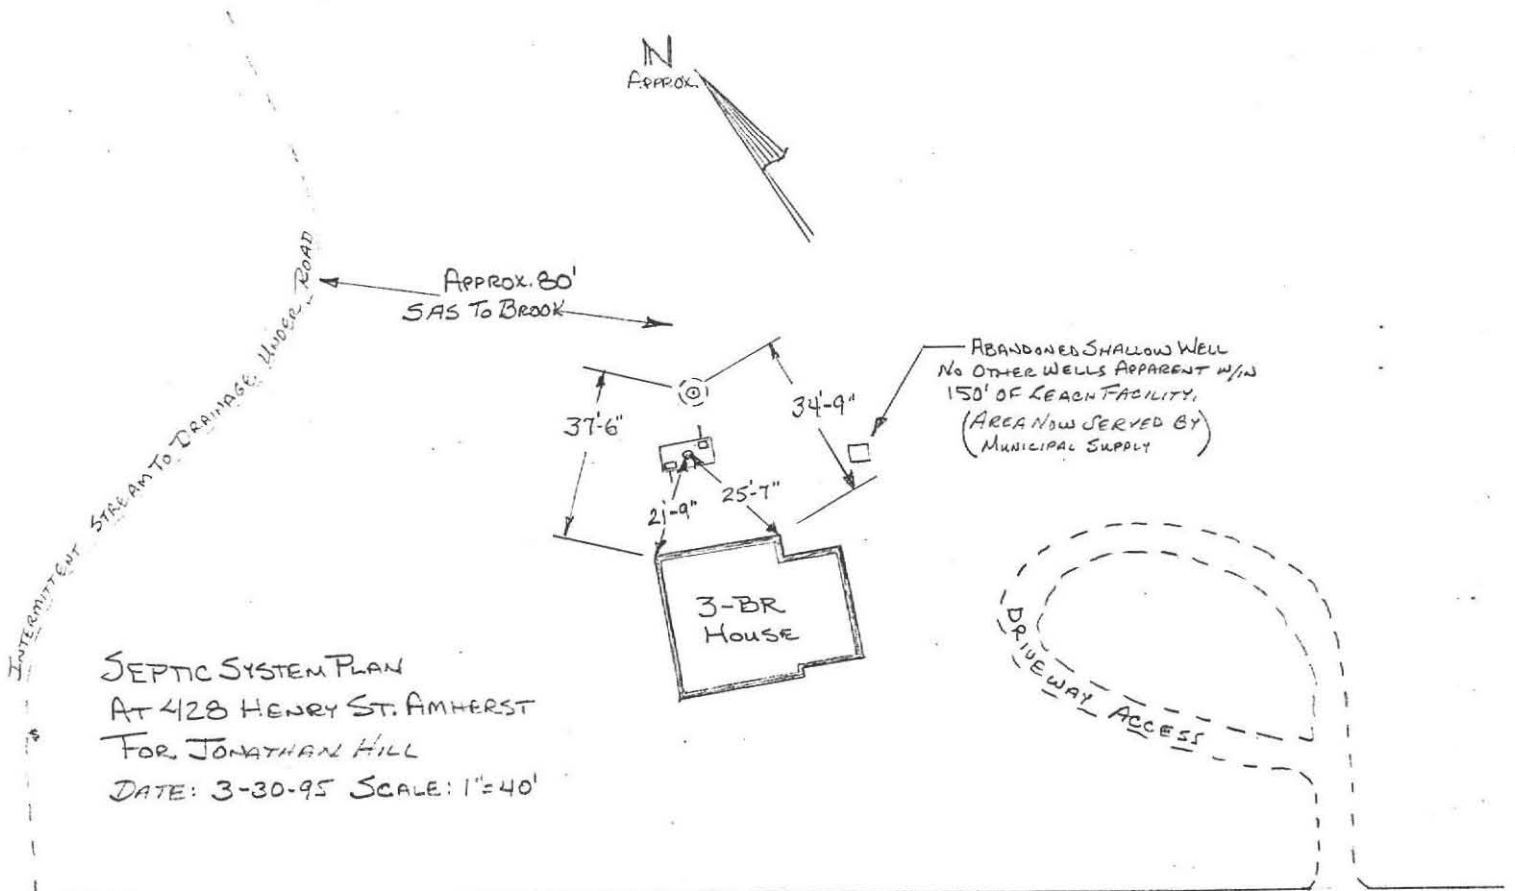 N
APPROX.
APPROX. 80'
SAS TO BROOK
INTERMITTENT STREAM TO DRAINAGE UNDER ROAD
ABANDONED SHALLOW WELL
NO OTHER WELLS APPARENT W/IN
150' OF LEACH FACILITY.
(AREA NOW SERVED BY
MUNICIPAL SUPPLY)
37'-6"
34'-9"
21'-9"
25'-7"
3-BR
HOUSE
DRIVEWAY ACCESS
SEPTIC SYSTEM PLAN
AT 428 HENRY ST. AMHERST
FOR JONATHAN HILL
DATE: 3-30-95 SCALE: 1"=40'